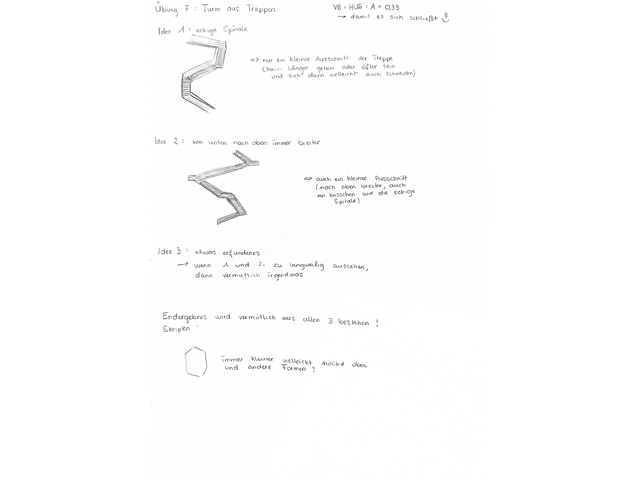 Übung 7 : Turm aus Treppen
VB : HUB : A = 0,99
→ damit es sich schließt
Idee 1 : eckige Spirale
⇒ nur ein kleiner Ausschnitt der Treppe
(kann länger gehen oder öfter sein
und sich dann vielleicht auch schneiden)
Idee 2 : von unten nach oben immer breiter
⇒ auch ein kleiner Ausschnitt
(nach oben breiter, auch
ein bisschen wie die eckige
Spirale)
Idee 3 : etwas erfundenes
→ wenn 1. und 2. zu langweilig aussehen,
dann vermutlich irgendwas
Endergebnis wird vermutlich aus allen 3 bestehen !
Skripten :
immer kleiner vielleicht nach oben
und andere Formen ?